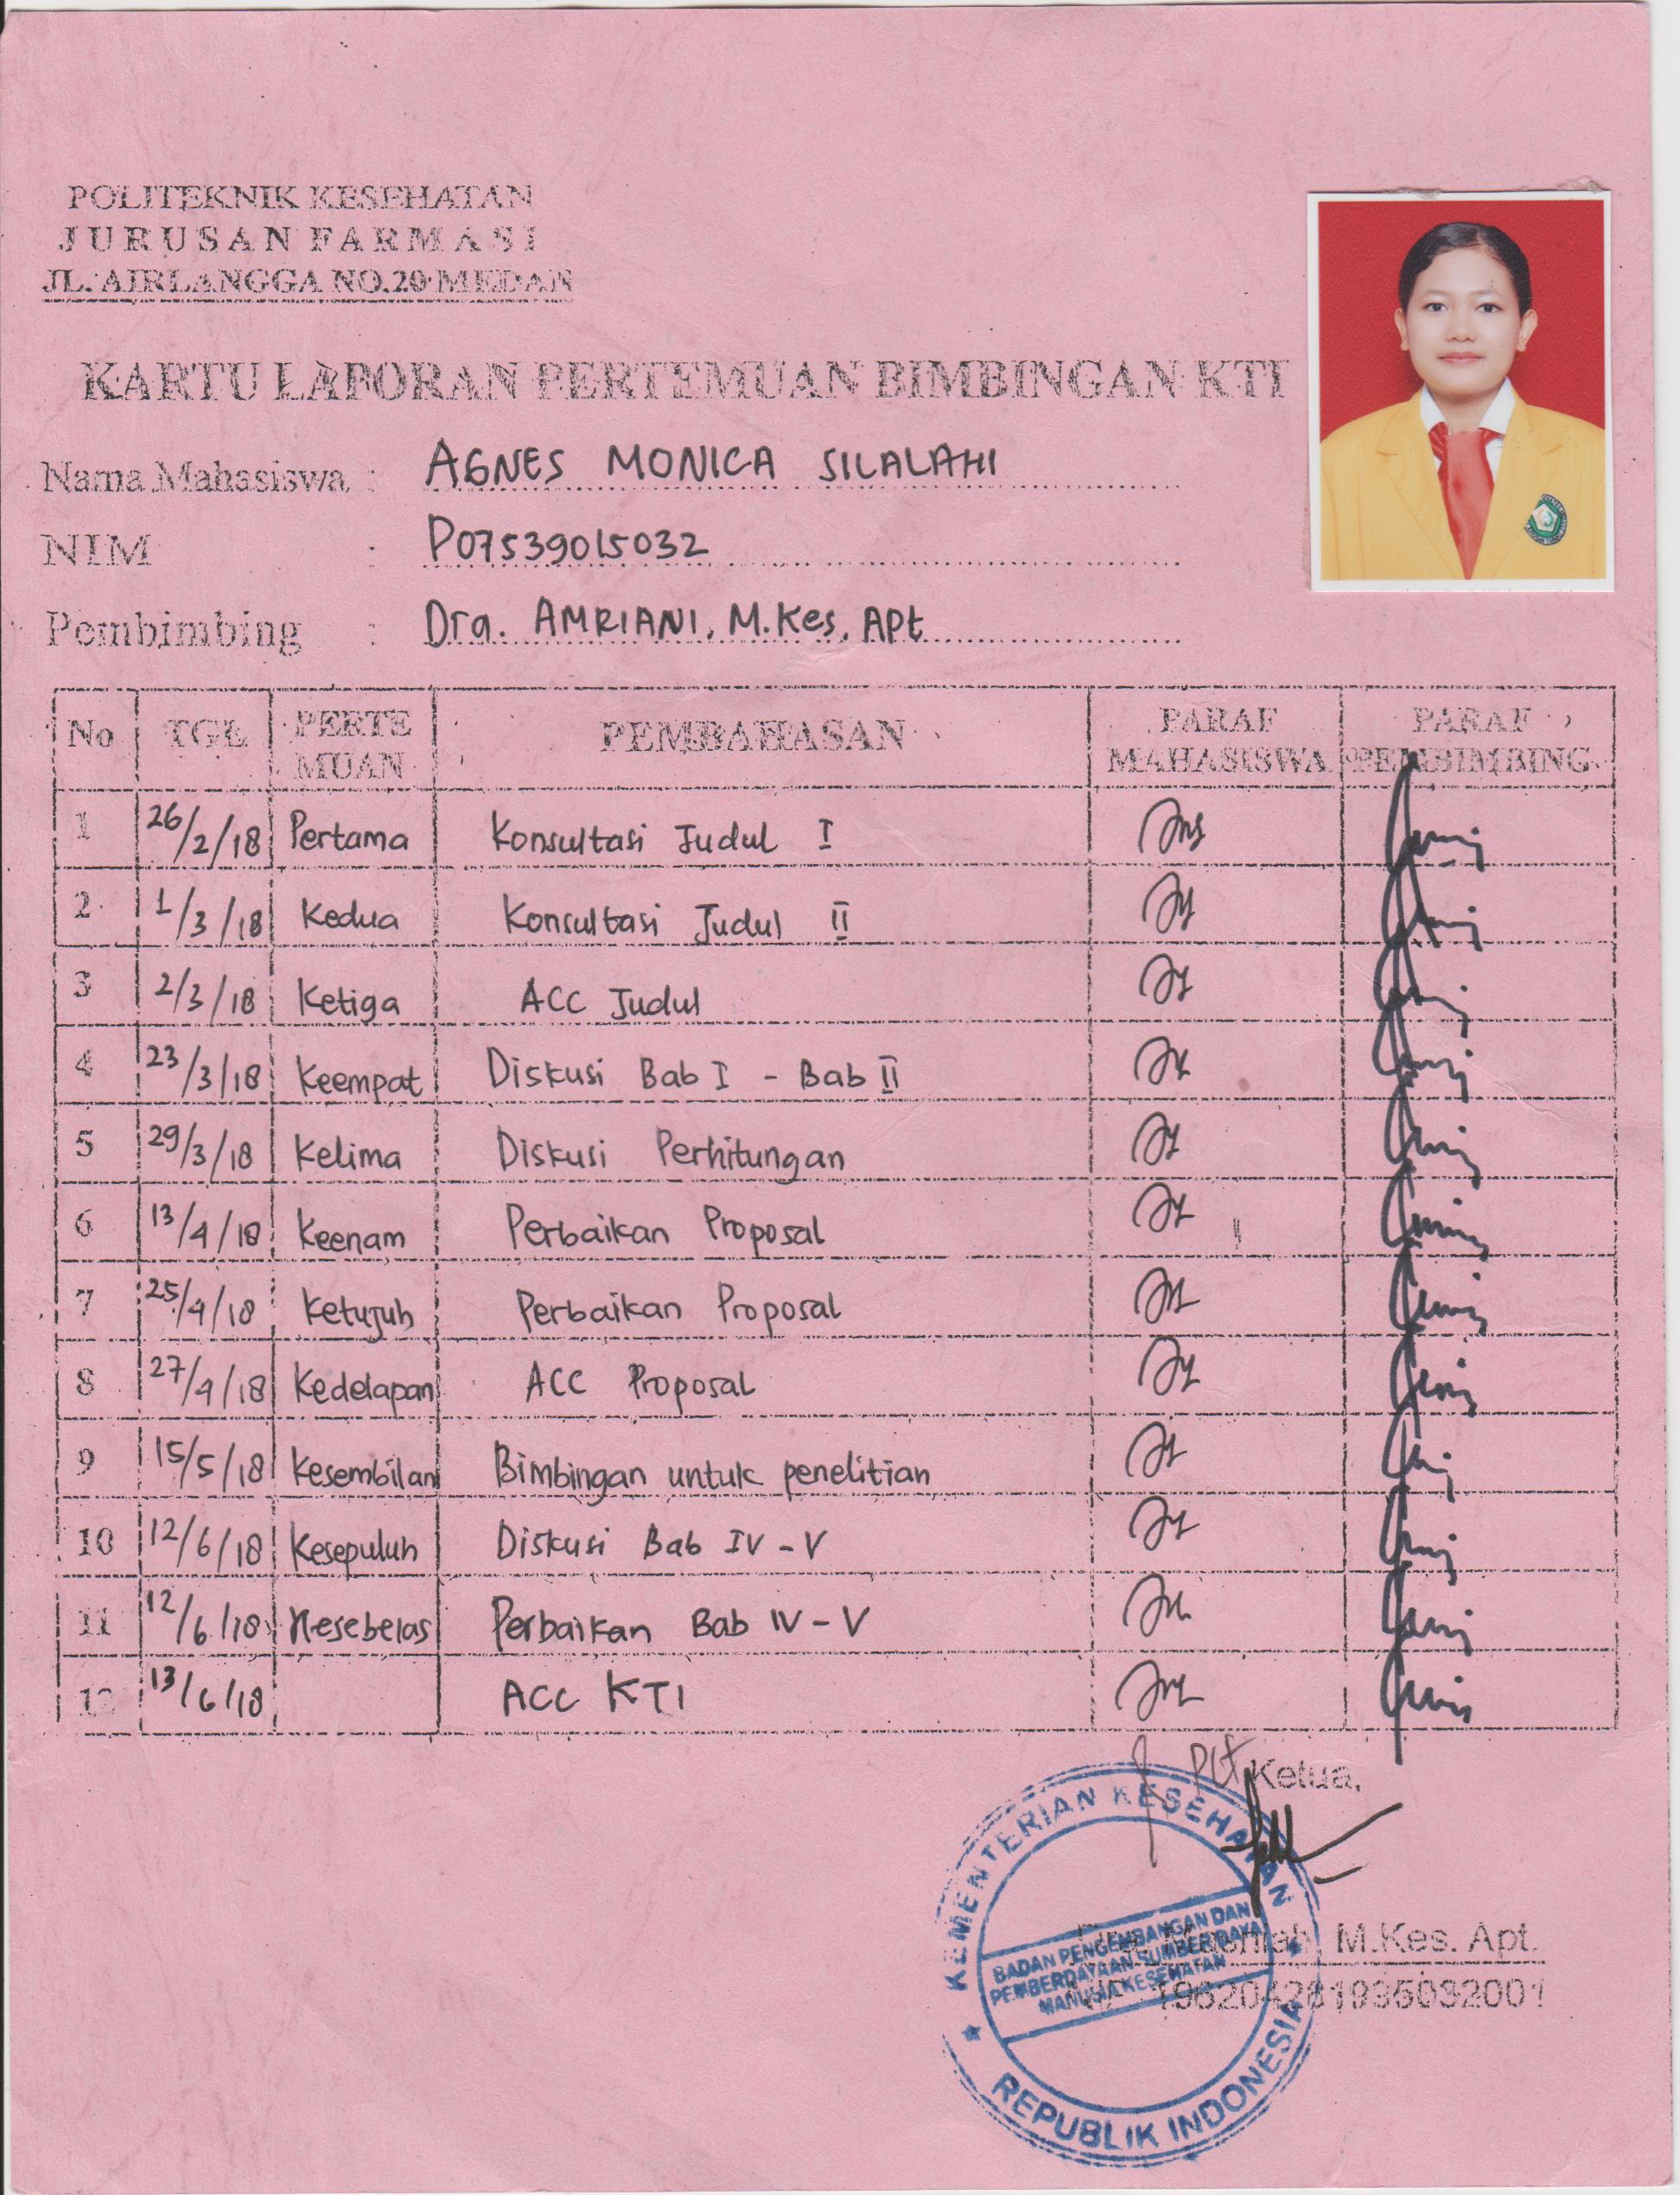 POLITEKNIK KESEHATAN
JURUSAN FARMASI
JL. AIRLANGGA NO.20 MEDAN
KARTU LAPORAN PERTEMUAN BIMBINGAN KTI
Nama Mahasiswa : AGNES MONICA SILALAHI
NIM : P07539015032
Pembimbing : Dra. AMRIANI, M.Kes, Apt
No TGL PERTE MUAN PEMBAHASAN PARAF MAHASISWA PARAF PEMBIMBING
1 26/2/18 Pertama Konsultasi Judul I
2 1/3/18 Kedua Konsultasi Judul II
3 2/3/18 Ketiga ACC Judul
4 23/3/18 Keempat Diskusi Bab I - Bab II
5 29/3/18 Kelima Diskusi Perhitungan
6 13/4/18 Keenam Perbaikan Proposal
7 25/4/18 Ketujuh Perbaikan Proposal
8 27/4/18 Kedelapan ACC Proposal
9 15/5/18 Kesembilan Bimbingan untuk penelitian
10 12/6/18 Kesepuluh Diskusi Bab IV - V
11 12/6/18 Kesebelas Perbaikan Bab IV - V
12 13/6/18 ACC KTI
Plt Ketua,
M.Kes. Apt.
KEMENTERIAN KESEHATAN
BADAN PENGEMBANGAN DAN
PEMBERDAYAAN SUMBER DAYA
MANUSIA KESEHATAN
REPUBLIK INDONESIA